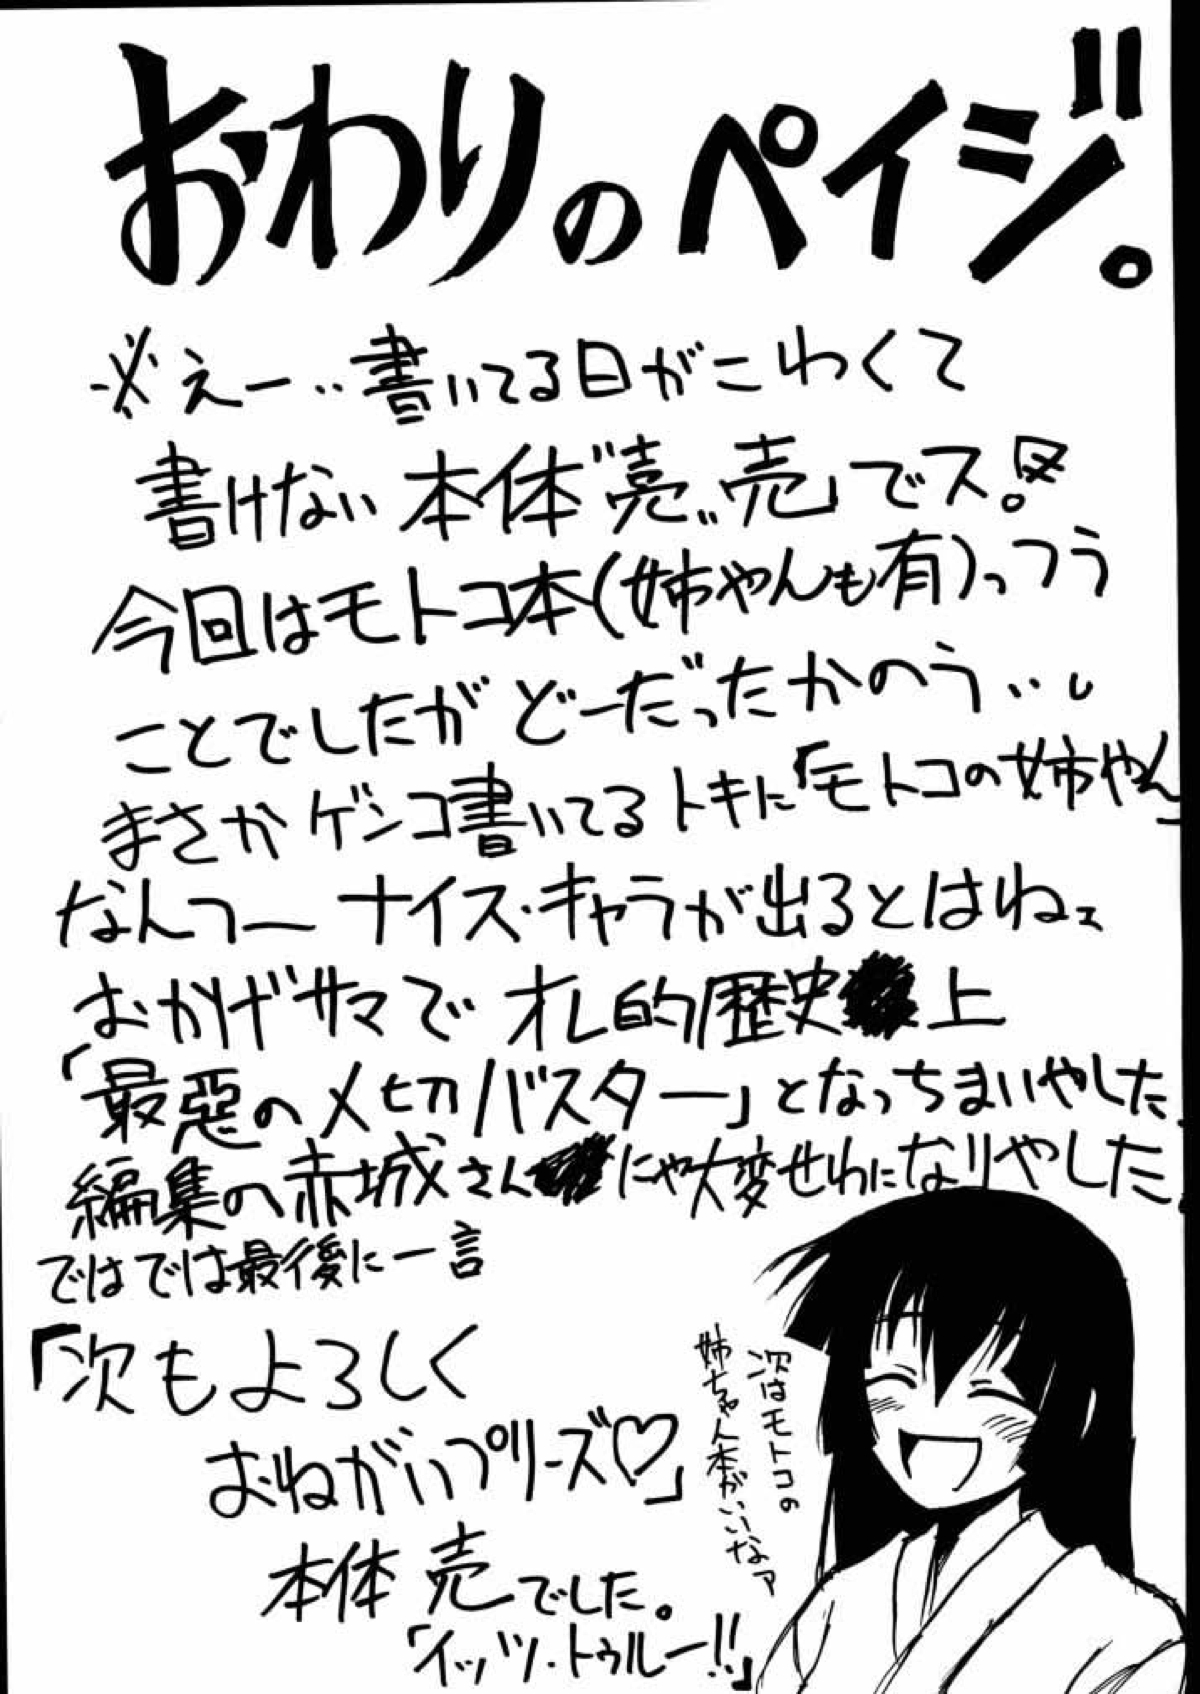 おわりのペイジ。
※えー‥書いてる日がこわくて
書けない本体〝売〟売」でス。
今回はモトコ本(姉やんも有)っつう
ことでしたがどーだったかのう‥し
まさかゲンコ書いてるトキに「モトコの姉やん」
なんつーナイス・キャラが出るとはねェ
おかげサマでオレ的歴史上
「最悪の〆切バスター」となっちまいやした
編集の赤城さんにゃ大変せわになりやした
ではでは最後に一言
「次もよろしく
おねがいプリーズ♡」
本体 売でした。
「イッツ・トゥルー!!」
次はモトコの
姉ちゃん本がいいなァ